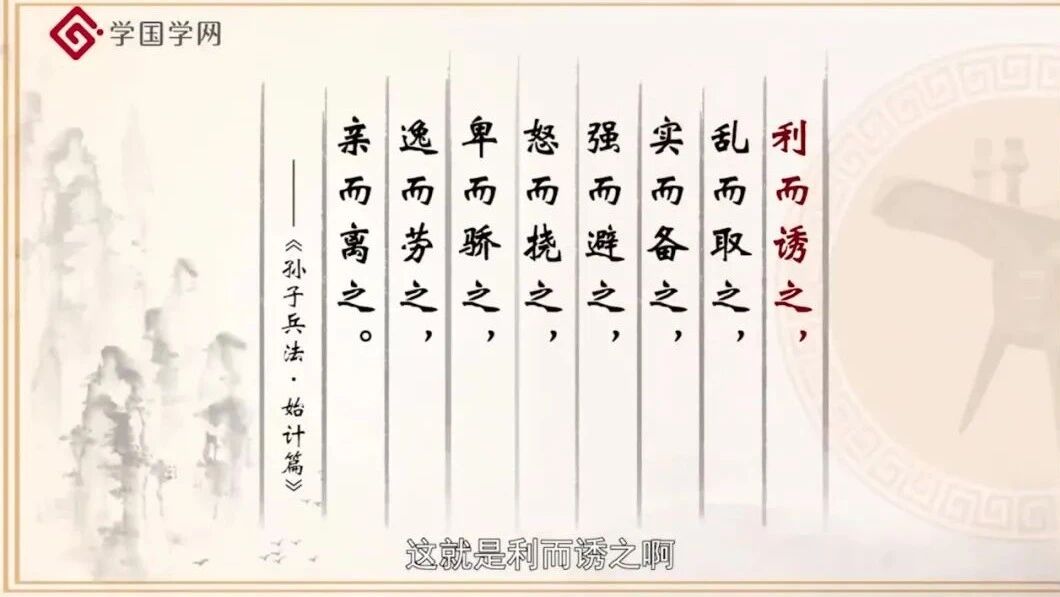 学国学网
利而诱之，
乱而取之，
实而备之，
强而避之，
怒而挠之，
卑而骄之，
逸而劳之，
亲而离之。
——《孙子兵法·始计篇》
这就是利而诱之啊